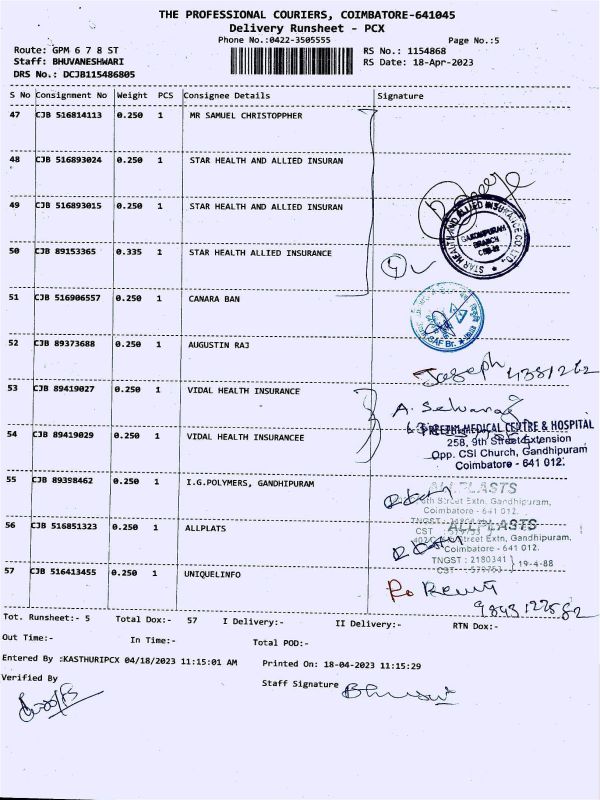 THE PROFESSIONAL COURIERS, COIMBATORE-641045
Delivery Runsheet - PCX
Phone No.:0422-3505555
Page No.:5
Route: GPM 6 7 8 ST
RS No.: 1154868
Staff: BHUVANESHWARI
RS Date: 18-Apr-2023
DRS No.: DCJB115486805
S No Consignment No Weight PCS Consignee Details Signature
47 CJB 516814113 0.250 1 MR SAMUEL CHRISTOPPHER
48 CJB 516893024 0.250 1 STAR HEALTH AND ALLIED INSURAN
49 CJB 516893015 0.250 1 STAR HEALTH AND ALLIED INSURAN
STAR HEALTH AND ALLIED INSURANCE CO. LTD.
GANDHIPURAM
BRANCH
50 CJB 89153365 0.335 1 STAR HEALTH ALLIED INSURANCE
51 CJB 516906557 0.250 1 CANARA BAN
52 CJB 89373688 0.250 1 AUGUSTIN RAJ
Joseph
53 CJB 89419027 0.250 1 VIDAL HEALTH INSURANCE
A. Selvaraj
MEDICAL CENTRE & HOSPITAL
258, 9th Street Extension
54 CJB 89419029 0.250 1 VIDAL HEALTH INSURANCEE
Opp. CSI Church, Gandhipuram
Coimbatore - 641 012.
55 CJB 89398462 0.250 1 I.G.POLYMERS, GANDHIPURAM
ALLPLASTS
Street Extn. Gandhipuram,
Coimbatore - 641 012.
56 CJB 516851323 0.250 1 ALLPLATS
ALLPLASTS
Street Extn, Gandhipuram,
Coimbatore - 641 012.
TNGST : 2180341
19-4-88
57 CJB 516413455 0.250 1 UNIQUELINFO
Tot. Runsheet:- 5 Total Dox:- 57 I Delivery:- II Delivery:- RTN Dox:-
Out Time:- In Time:- Total POD:-
Entered By :KASTHURIPCX 04/18/2023 11:15:01 AM Printed On: 18-04-2023 11:15:29
Verified By
Staff Signature